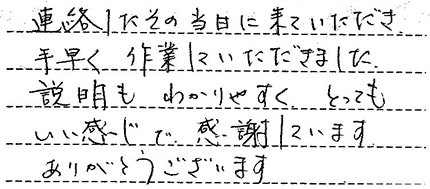 連絡したその当日に来ていただき
手早く 作業していただきました.
説明も わかりやすく とっても
いい感じで 感謝しています
ありがとうございます